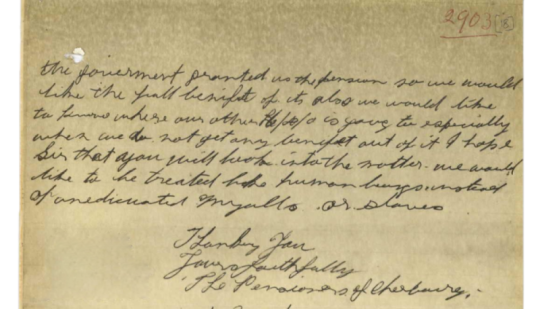 2903
the goverment granted us the pension so we would
like the full benefit of it, also we would like
to know where our other is going to especially
when we do not get any benefit out of it I hope
Sir that you will look into the matter. we would
like to be treated like human beings instead
of uneducated Myalls or slaves
Thanking You
Yours faithfully
The Pensioners of Cherbourg,-